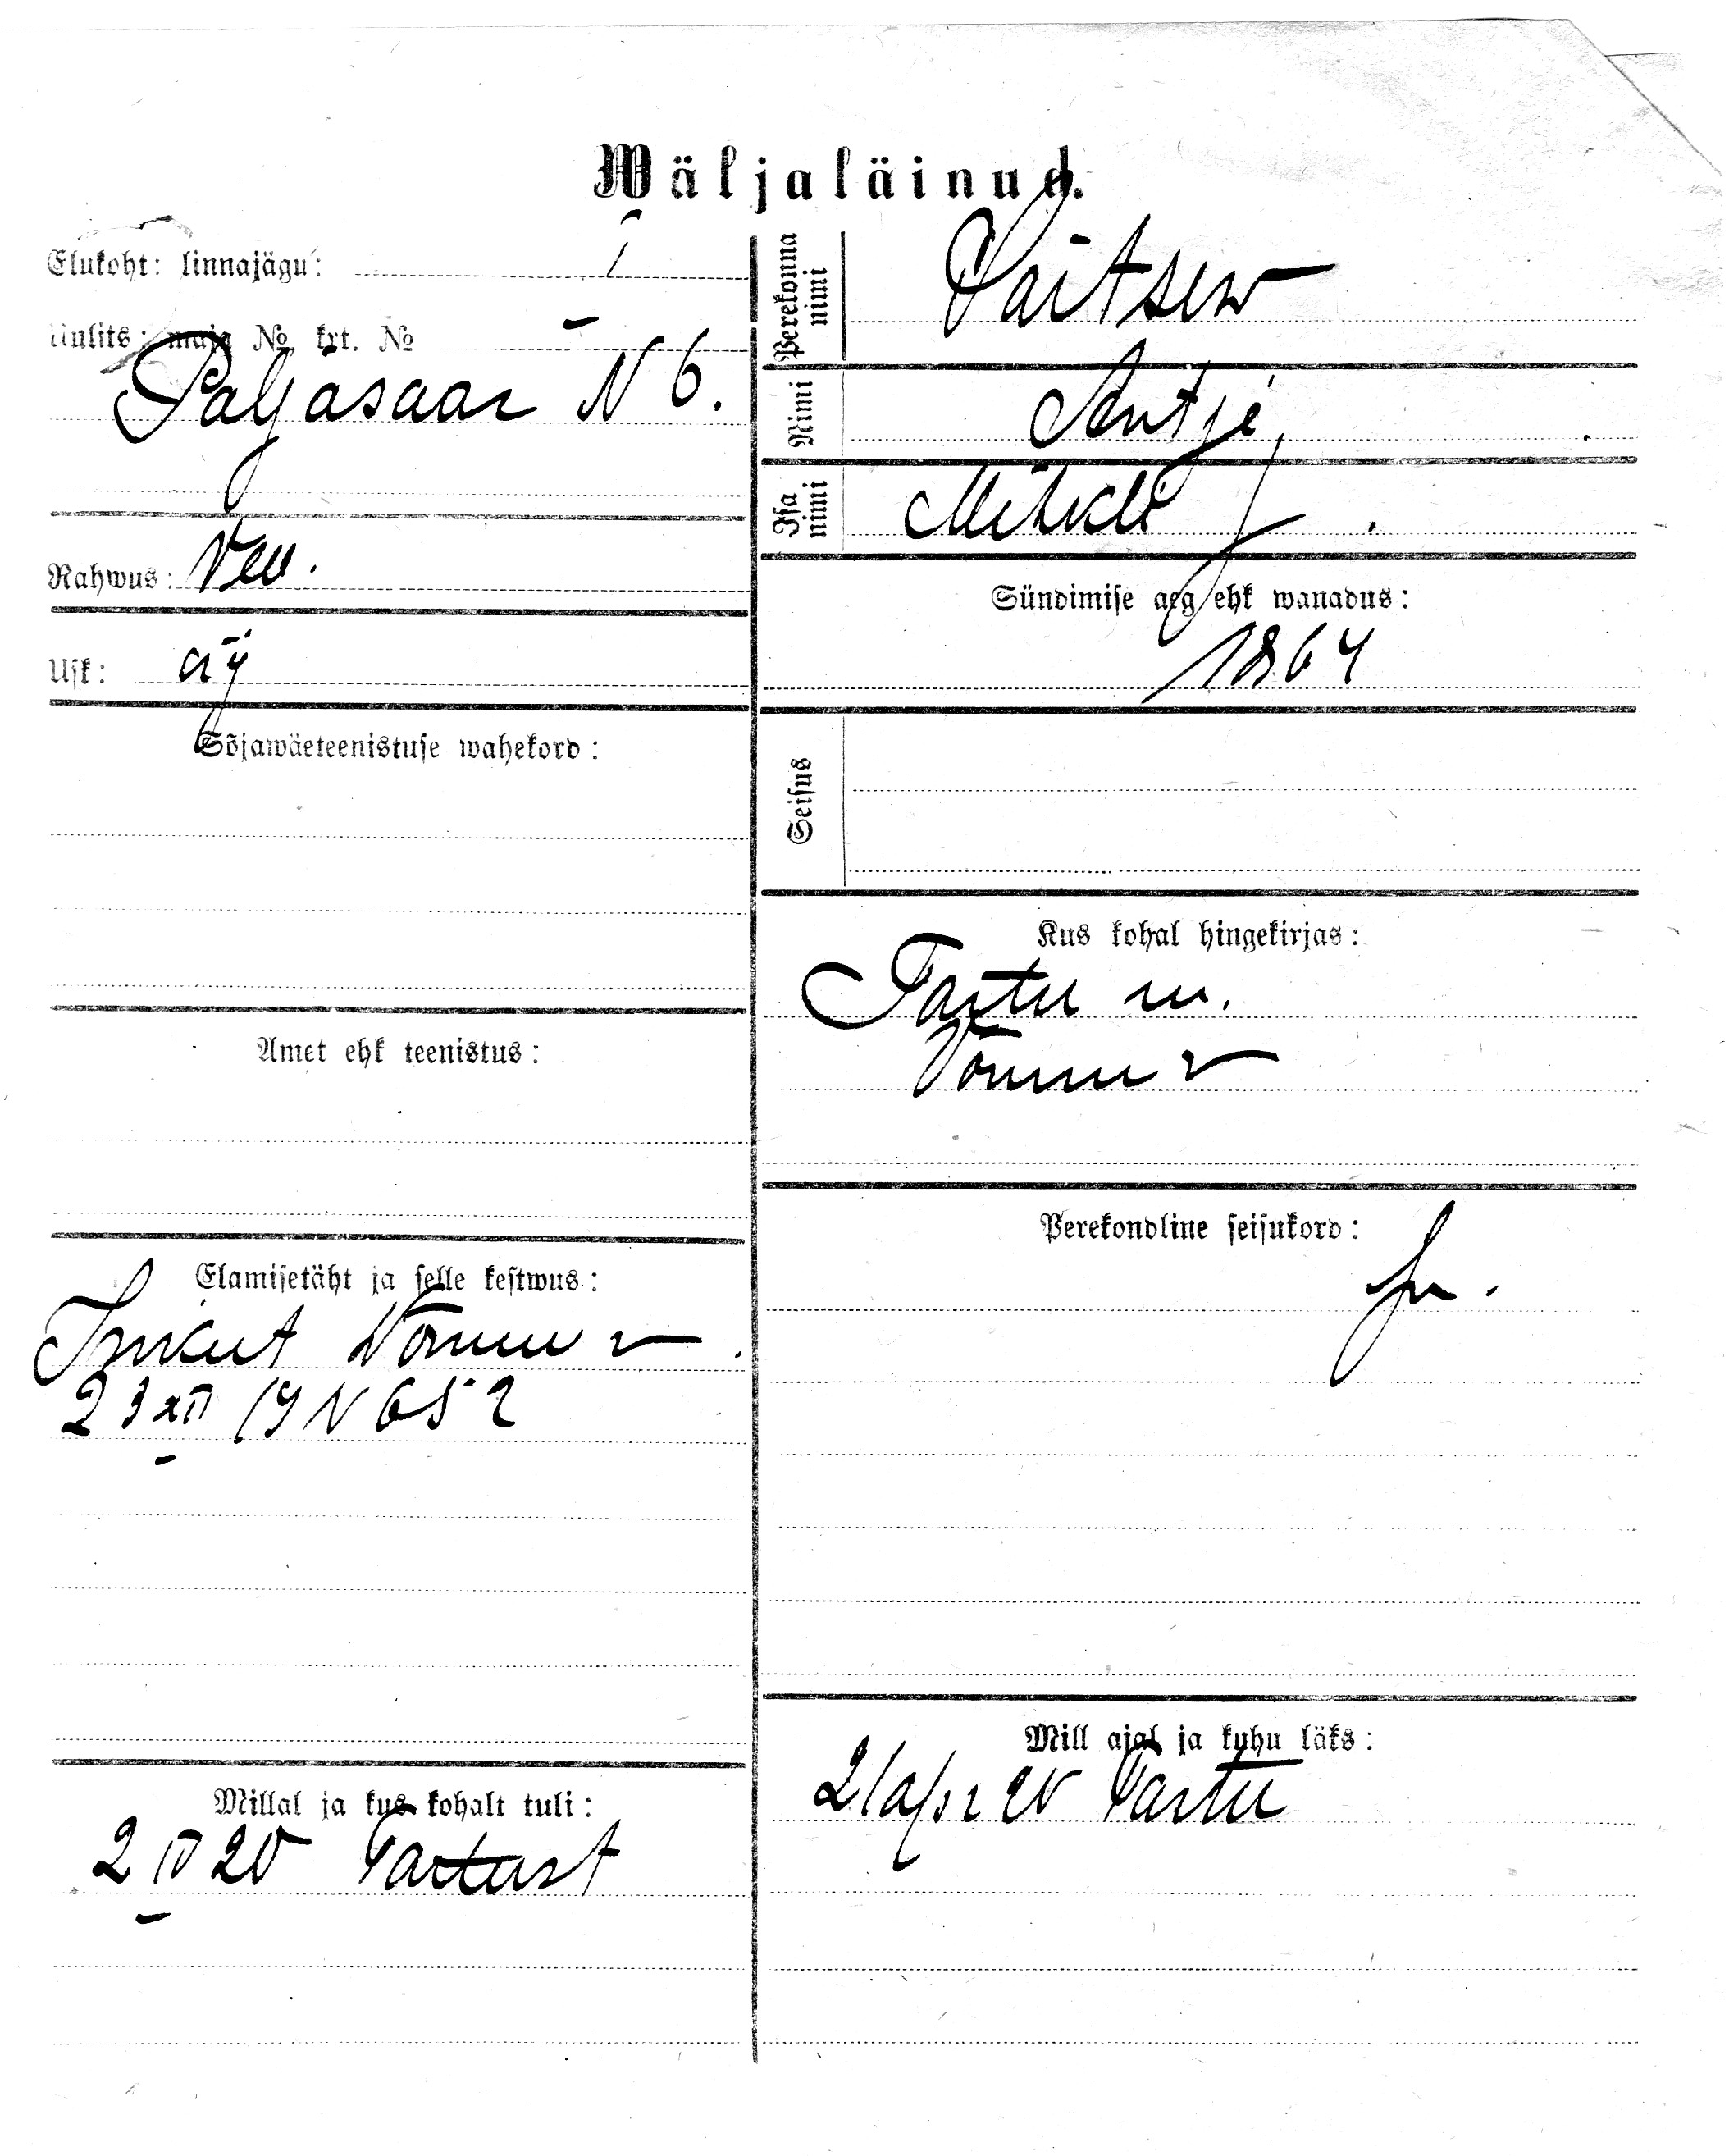 Wäljaläinud.
Elukoht: linnajägu: I
Uulits: maja № krt. №
Paljasaar N 6.
Rahwus: Ven.
Usk: aÿ
Sõjawäeteenistuse wahekord:
Amet ehk teenistus:
Elamisetäht ja selle kestwus:
Võnnu v.
23 XII 19 N 652
Millal ja kus kohalt tuli:
2 IV 20 Tartust
Perekonna nimi
Nimi
Isa nimi
Mihkli
Sündimise aeg ehk wanadus:
1864
Seisus
Kus kohal hingekirjas:
Tartu m.
Võnnu v
Perekondline seisukord:
Mill ajal ja kuhu läks:
21 apr 20 Tartu